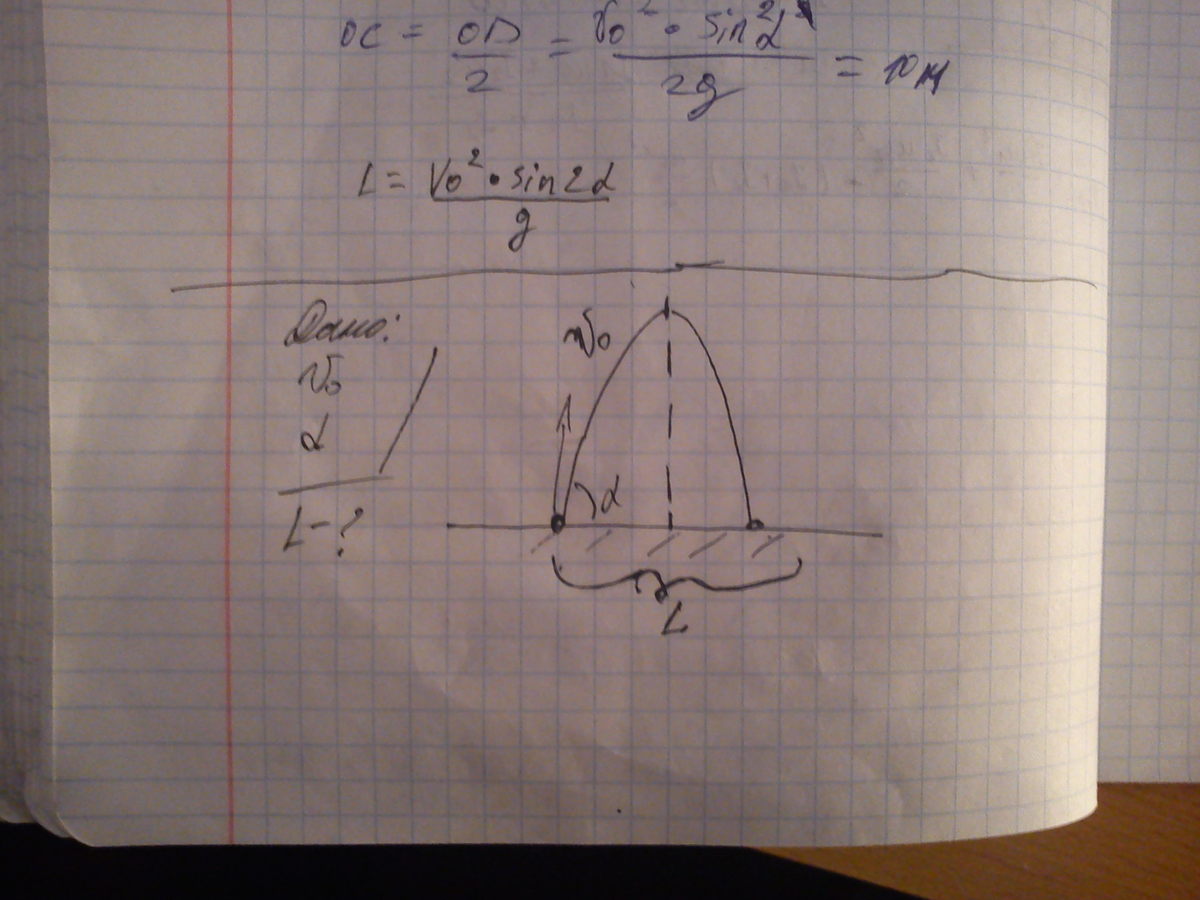 OC = OD/2 = v₀² · sin²α / 2g = 10 м
L = v₀² · sin2α / g
Дано:
v₀
α
L - ?
v₀
α
L